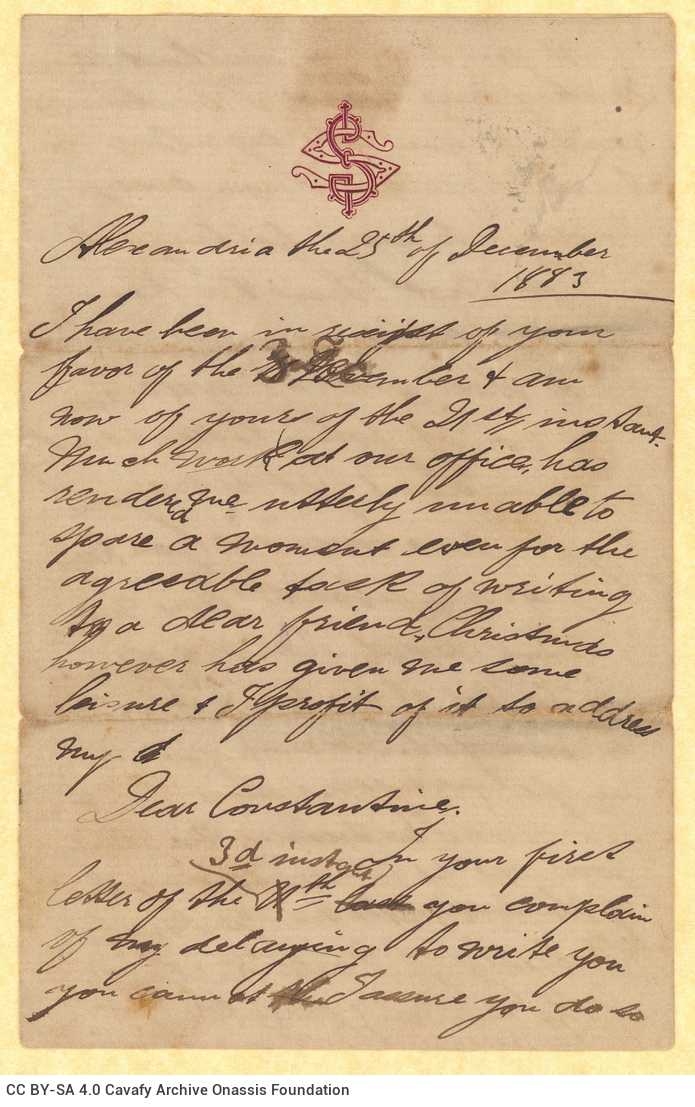 Alexandria the 25th of December
1883
I have been in receipt of your
favor of the 3d December & am
now of yours of the 21st, instant.
Much work at our office, has
rendered me utterly unable to
spare a moment even for the
agreable task of writing
to a dear friend, Christmas
however has given me some
leisure & I profit of it to address
my
Dear Constantine.
In your first
3d instant
letter of the you complain
of my delaying to write you
you cannot I assure you do so
CC BY-SA 4.0 Cavafy Archive Onassis Foundation